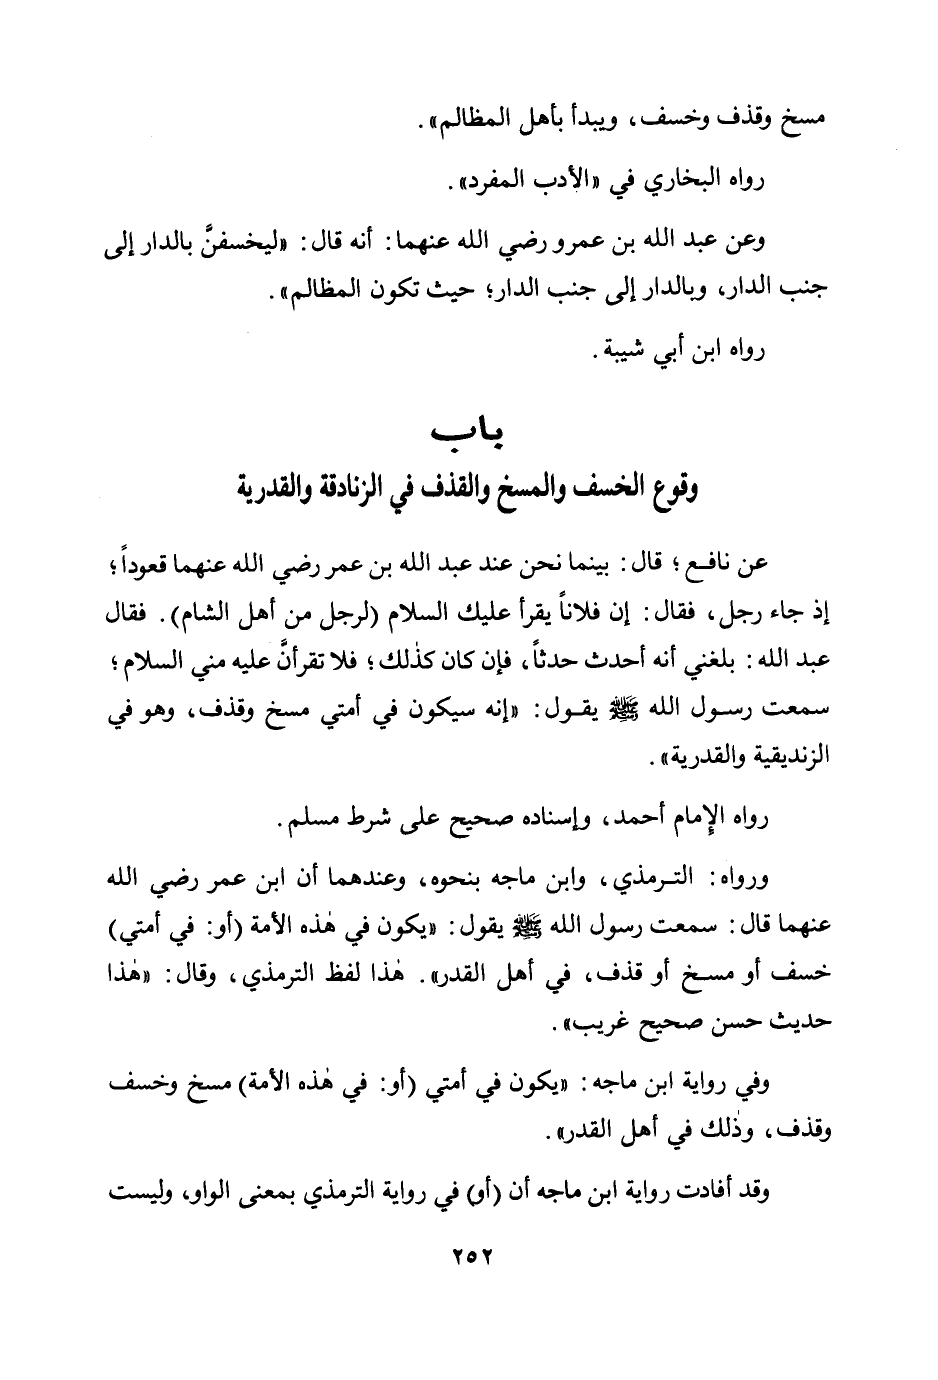 مسخ وقذف وخسف، ويبدأ بأهل المظالم».
رواه البخاري في «الأدب المفرد».
وعن عبد الله بن عمرو رضي الله عنهما: أنه قال: «ليخسفنَّ بالدار إلى
جنب الدار، وبالدار إلى جنب الدار؛ حيث تكون المظالم».
رواه ابن أبي شيبة.
باب
وقوع الخسف والمسخ والقذف في الزنادقة والقدرية
عن نافع؛ قال: بينما نحن عند عبد الله بن عمر رضي الله عنهما قعوداً؛
إذ جاء رجل، فقال: إن فلاناً يقرأ عليك السلام (لرجل من أهل الشام). فقال
عبد الله: بلغني أنه أحدث حدثاً، فإن كان كذٰلك؛ فلا تقرأنَّ عليه مني السلام؛
سمعت رسول الله ﷺ يقول: «إنه سيكون في أمتي مسخ وقذف، وهو في
الزنديقية والقدرية».
رواه الإمام أحمد، وإسناده صحيح على شرط مسلم.
ورواه: الترمذي، وابن ماجه بنحوه، وعندهما أن ابن عمر رضي الله
عنهما قال: سمعت رسول الله ﷺ يقول: «يكون في هٰذه الأمة (أو: في أمتي)
خسف أو مسخ أو قذف، في أهل القدر». هٰذا لفظ الترمذي، وقال: «هٰذا
حديث حسن صحيح غريب».
وفي رواية ابن ماجه: «يكون في أمتي (أو: في هٰذه الأمة) مسخ وخسف
وقذف، وذٰلك في أهل القدر».
وقد أفادت رواية ابن ماجه أن (أو) في رواية الترمذي بمعنى الواو، وليست
٢٥٢